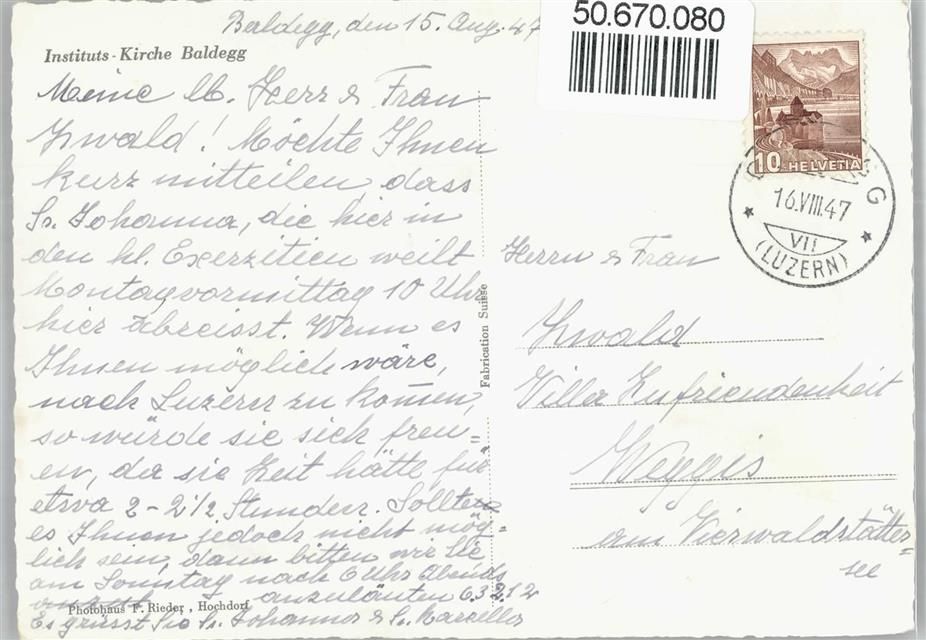 Baldegg, den 15. Aug. 47
50.670.080
Instituts-Kirche Baldegg
Meine lb. Herr & Frau
Zwald! Möchte Ihnen
kurz mitteilen, dass
Sr. Johanna, die hier in
den hl. Exerzitien weilt
Montagvormittag 10 Uhr
hier abreisst. Wenn es
Ihnen möglich wäre,
nach Luzern zu kom̄en,
so würde sie sich freu=
en, da sie Zeit hätte für
etwa 2-2 1/2 Stunden. Sollte
es Ihnen jedoch nicht mög=
lich sein, dann bitten wir Sie
am Sonntag nach 6 Uhr Abends
anzuläuten 63212
Photohaus F. Rieder, Hochdorf
Es grüsst Sie Sr. Johanna & Sr.
Fabrication Suisse
10 HELVETIA
16.VIII.47
VII
(LUZERN)
Herrn & Frau
Zwald
Villa Zufriedenheit
Weggis
am Vierwaldstätter=
see